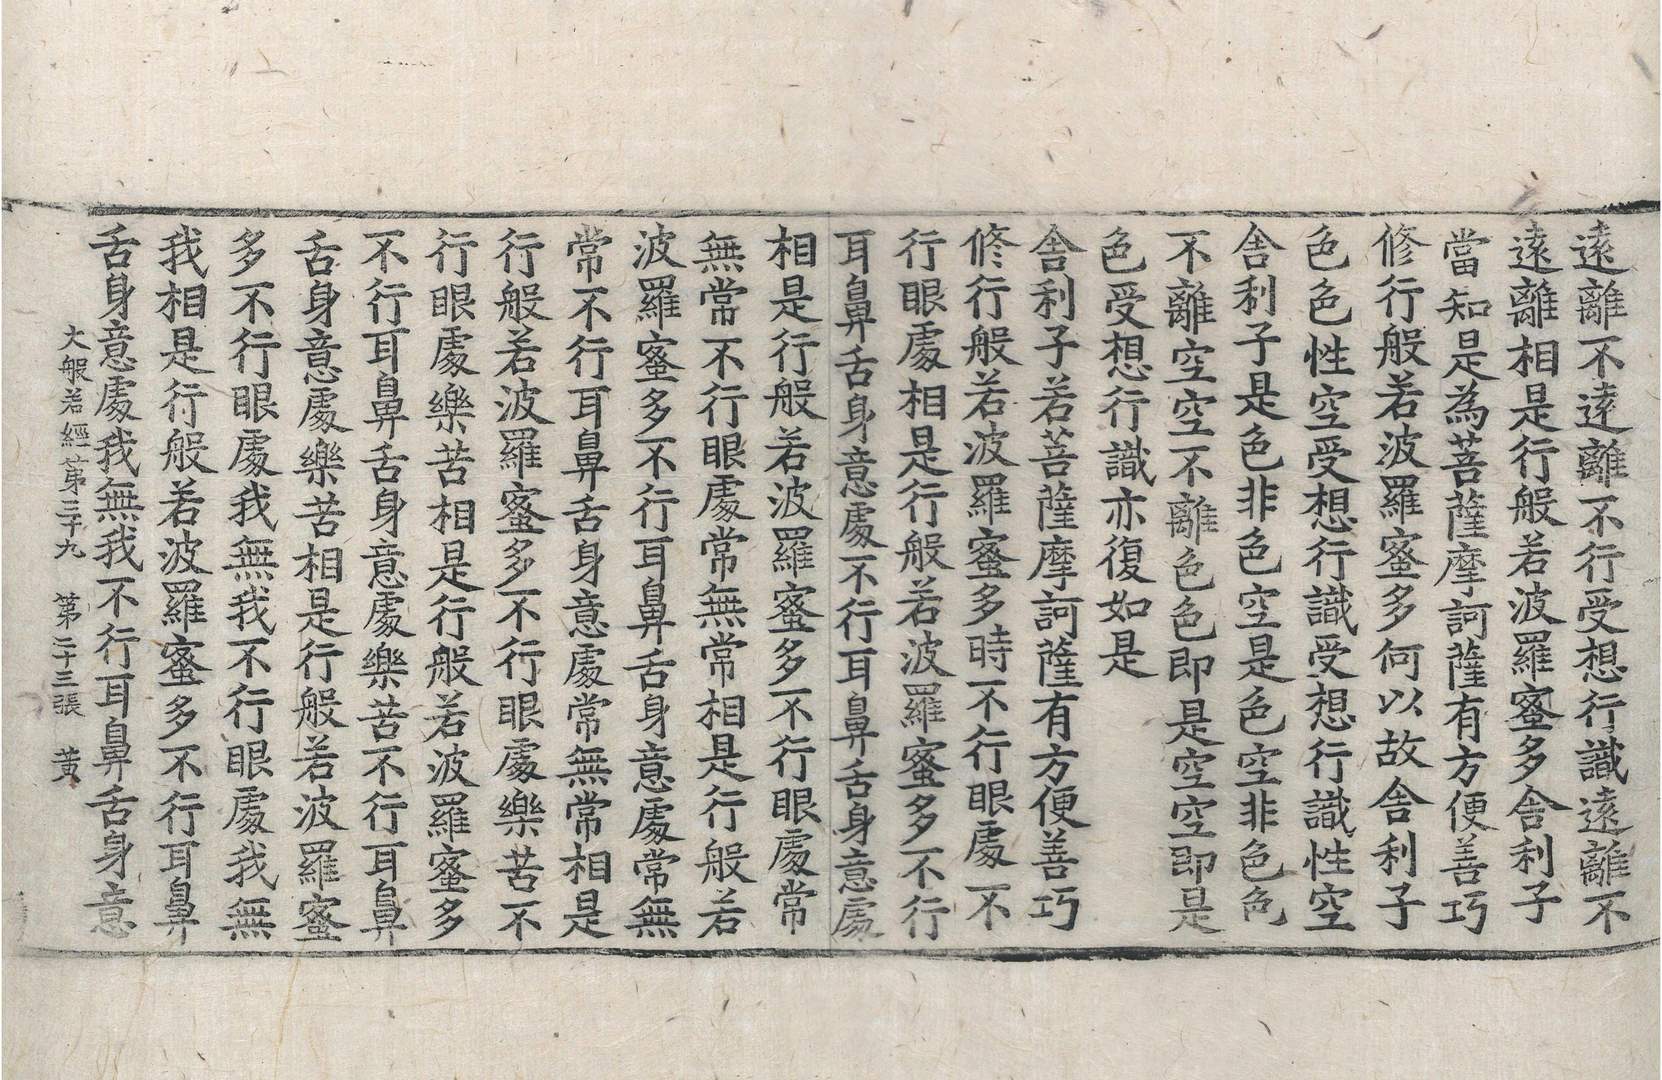 遠離不遠離不行受想行識遠離不
遠離相是行般若波羅蜜多舍利子
當知是為菩薩摩訶薩有方便善巧
修行般若波羅蜜多何以故舍利子
色色性空受想行識受想行識性空
舍利子是色非色空是色空非色色
不離空空不離色色即是空空即是
色受想行識亦復如是
舍利子若菩薩摩訶薩有方便善巧
修行般若波羅蜜多時不行眼處不
行眼處相是行般若波羅蜜多不行
耳鼻舌身意處不行耳鼻舌身意處
相是行般若波羅蜜多不行眼處常
無常不行眼處常無常相是行般若
波羅蜜多不行耳鼻舌身意處常無
常不行耳鼻舌身意處常無常相是
行般若波羅蜜多不行眼處樂苦不
行眼處樂苦相是行般若波羅蜜多
不行耳鼻舌身意處樂苦不行耳鼻
舌身意處樂苦相是行般若波羅蜜
多不行眼處我無我不行眼處我無
我相是行般若波羅蜜多不行耳鼻
舌身意處我無我不行耳鼻舌身意
大般若經第三十九 第二十三張 黃